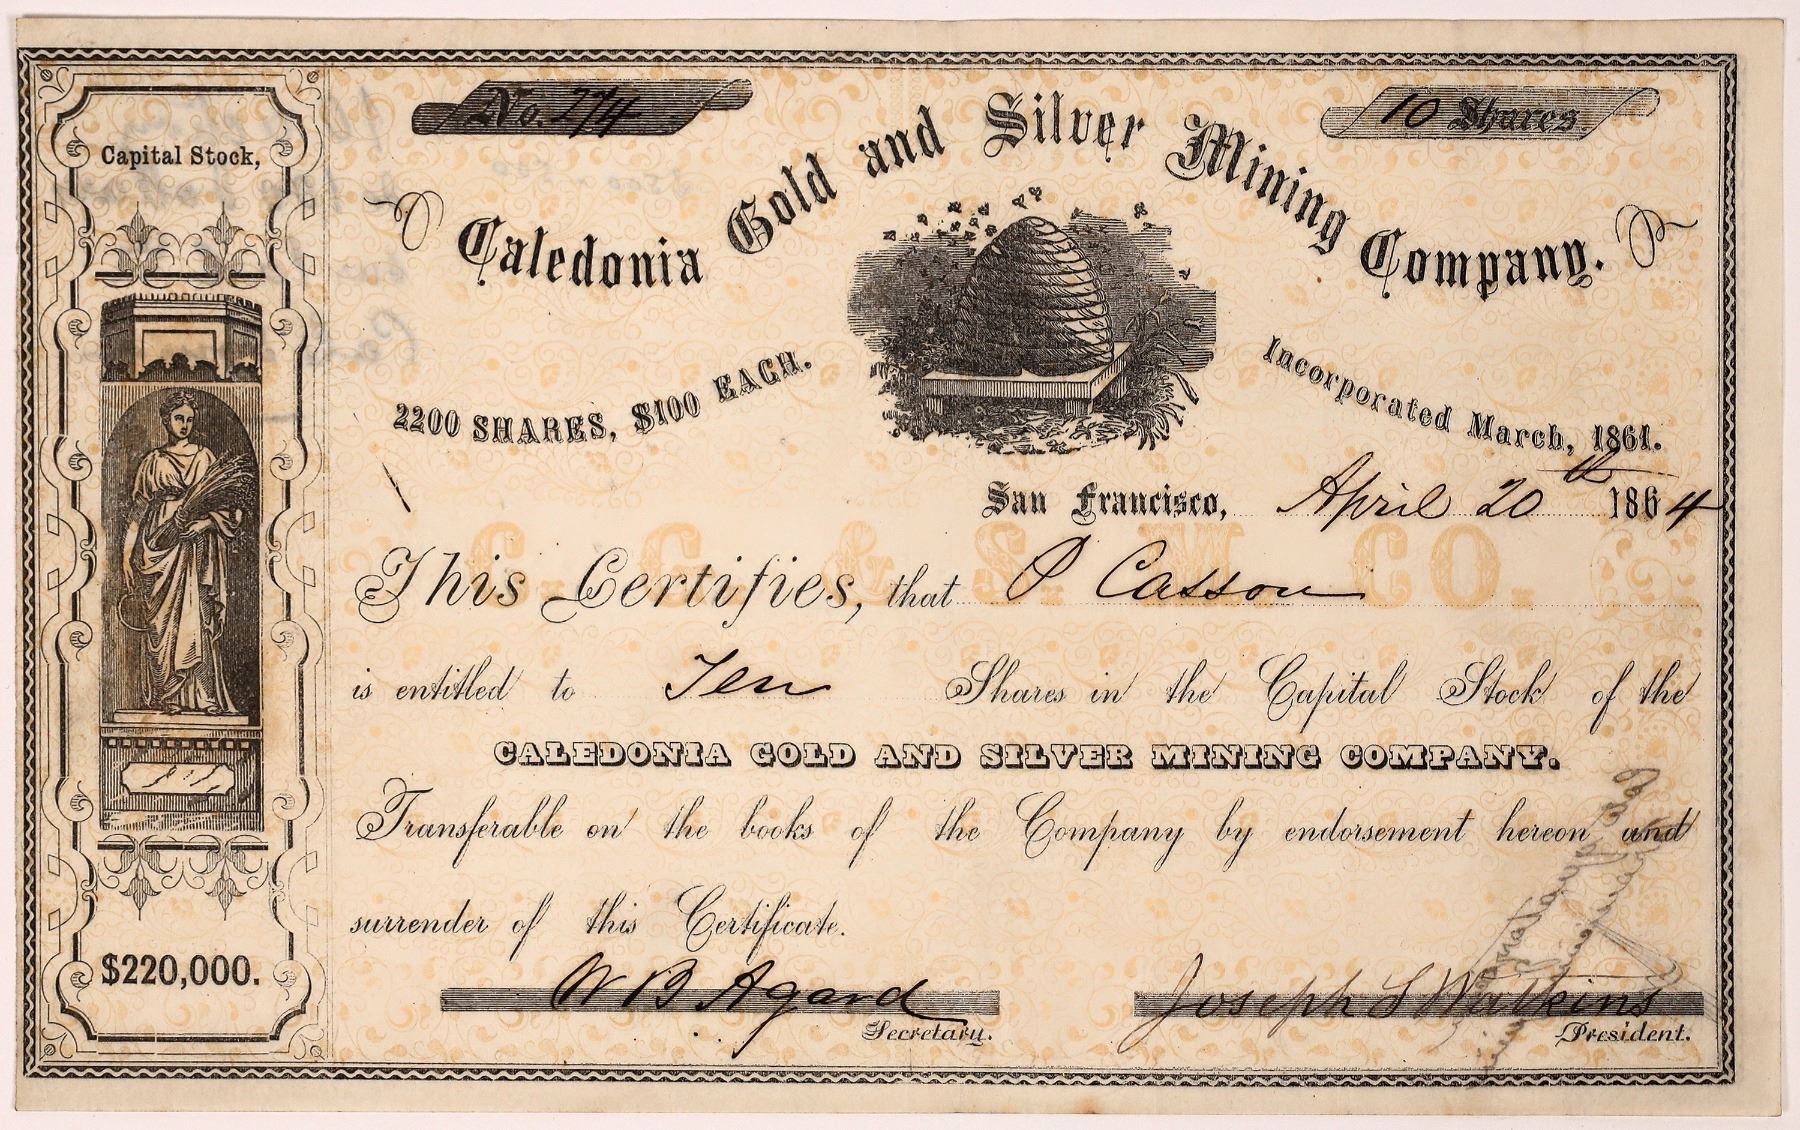 No. 274
10 Shares.
Caledonia Gold and Silver Mining Company.
Capital Stock,
2200 SHARES, $100 EACH.
Incorporated March, 1861.
San Francisco, April 20th 1864
C. G. & S. M. CO.
This Certifies, that P Casson
is entitled to Ten Shares in the Capital Stock of the
CALEDONIA GOLD AND SILVER MINING COMPANY.
Transferable on the books of the Company by endorsement hereon and
surrender of this Certificate.
$220,000.
W B Agard
Secretary.
Joseph S Watkins
President.